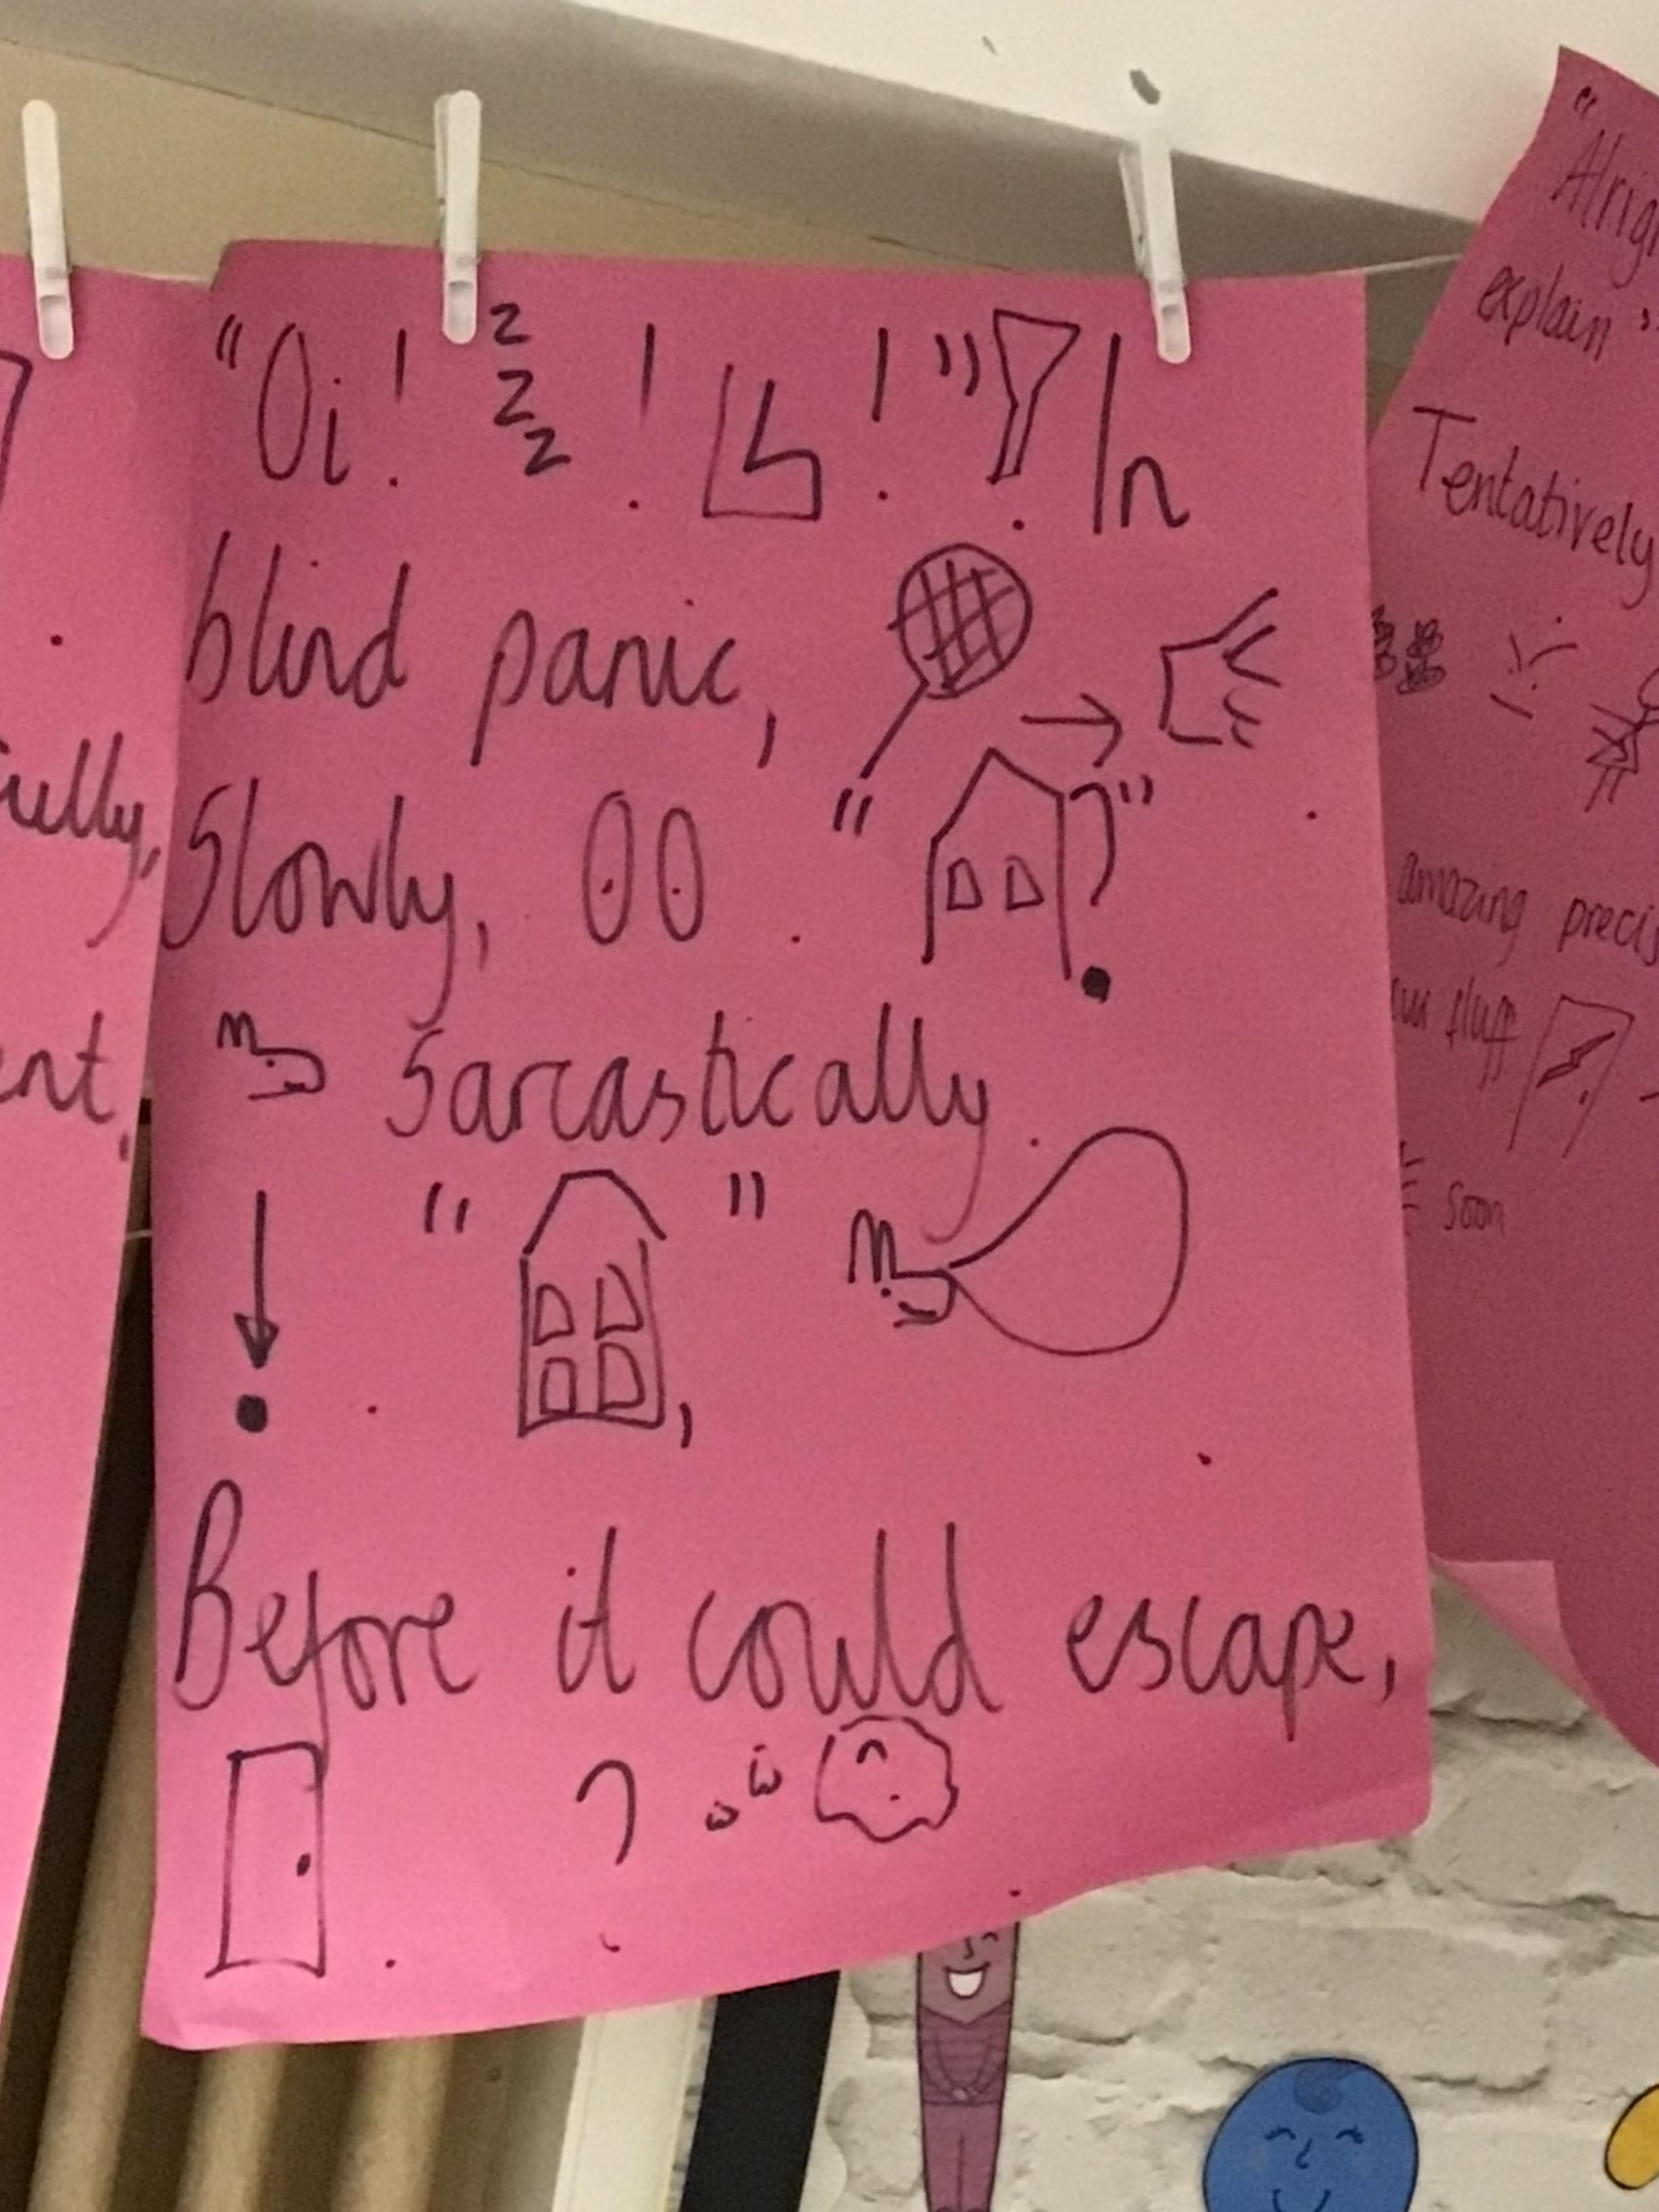 "Oi! zzz! ! "! In
blind panic,
Slowly, . " ?" .
Sarcastically.
. " ", .
Before it could escape,
. ? .
ully,
ent.
"
explain"
Tentatively
amazing
fluff
soon